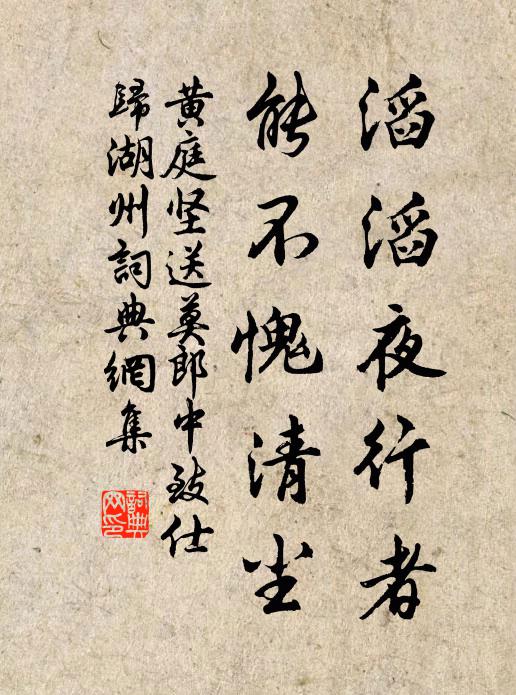 滔滔夜行者
能不愧清尘
黄庭坚送莫郎中致仕
歸湖州詞典網集
詞典
网印